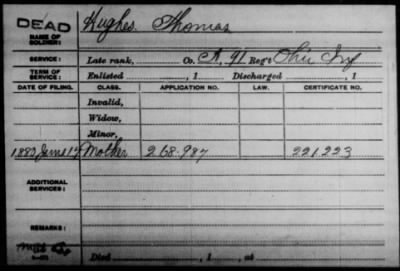 DEAD Hughes Thomas
NAME OF SOLDIER:
SERVICE: Late rank, Co. A, 91 Reg't Ohio Inf
TERM OF SERVICE: Enlisted , 1 Discharged , 1
DATE OF FILING. CLASS. APPLICATION NO. LAW. CERTIFICATE NO.
Invalid,
Widow,
Minor,
1880 June 17 Mother 268.987 221223
ADDITIONAL SERVICES:
REMARKS:
Died , 1 , at